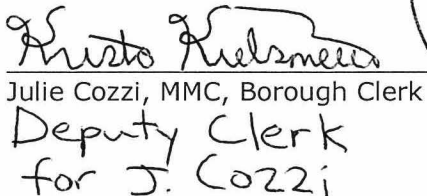 Krista Kielsmeier
Julie Cozzi, MMC, Borough Clerk
Deputy Clerk
for J. Cozzi